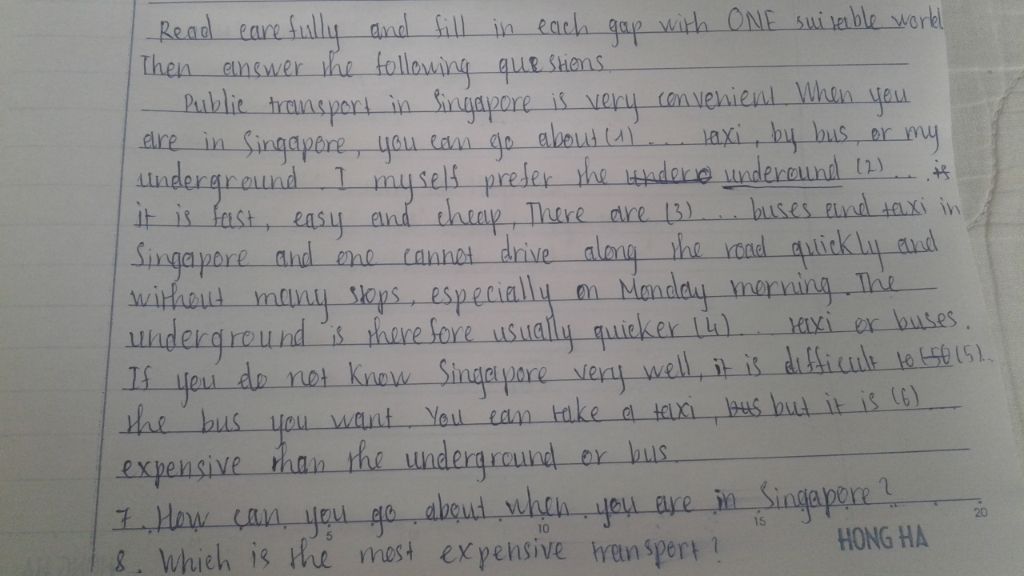 Read carefully and fill in each gap with ONE suitable world
Then answer the following questions.
Public transport in Singapore is very convenient. When you
are in Singapore, you can go about (1) ... taxi, by bus, or my
underground. I myself prefer the undero underound (2) .... is
it is fast, easy and cheap, There are (3) ... buses and taxi in
Singapore and one cannot drive along the road quickly and
without many stops, especially on Monday morning. The
underground is therefore usually quicker (4) ... taxi or buses.
If you do not know Singapore very well, it is difficult to (5) ..
the bus you want. You can take a taxi, bus but it is (6)
expensive than the underground or bus.
7. How can you go about when you are in Singapore?
8. Which is the most expensive transport?
5 10 15 20
HONG HA